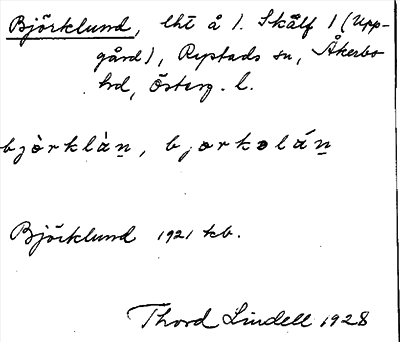 Björklund, lht å 1. Skälf 1 (Upp-
gård), Rystads sn, Åkerbo
hd, Österg. l.
bjòrklàṉ, bjorkoláṉ
Björklund 1921 kb.
Thord Lindell 1928